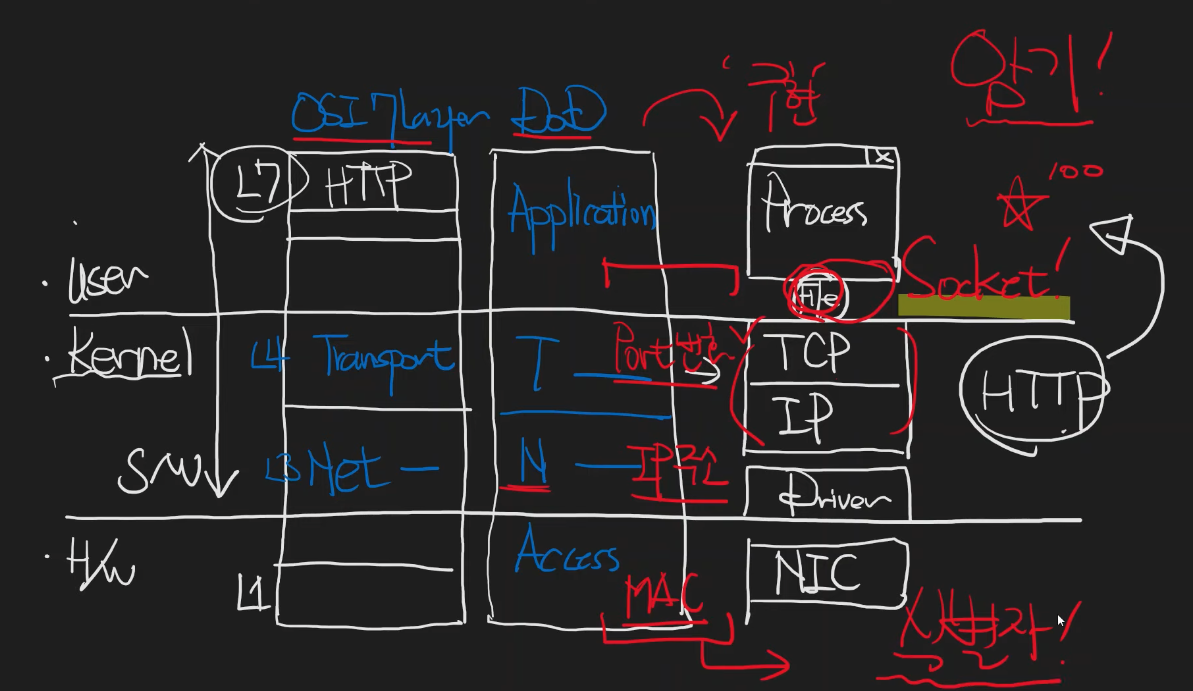 암기!
OSI 7 layer DoD '구현'
L7 HTTP
Application
Process
100
· User
File
Socket!
· Kernel
L4 Transport T Port번호
TCP
IP
HTTP
S/W
L3 Net N IP주소
Driver
· H/W
Access
NIC
L1
MAC